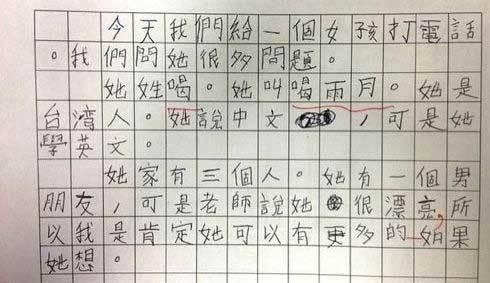 今天我們給一個女孩打電話
。我們問她很多問題。
她姓喝。她叫喝雨月。她是
台湾人。她說中文，可是她
學英文。
她家有三個人。她有一個男
朋友，可是老師說她很漂亮，所
以我是肯定她可以有更多的如果
她想。